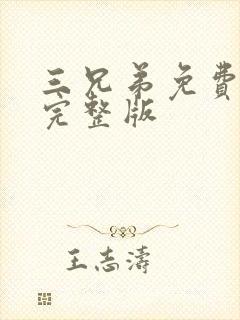 三兄弟免費
完整版
王志濤